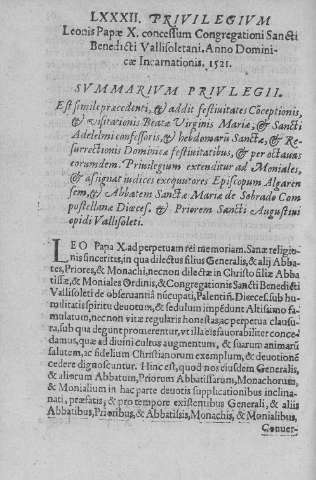 LXXXII. PRIVILEGIVM
Leonis Papæ X. concessum Congregationi Sancti
Benedicti Vallisoletani. Anno Domini-
cæ Incarnationis. 1521.
SVMMARIVM PRIVLEGII.
Est simile præcedenti, & addit festiuitates Cōceptionis,
& visitationis Beatæ Virginis Mariæ, & Sancti
Adelelmi confessoris, & hebdomarū Sanctæ, & Re-
surrectionis Dominicæ festiuitatibus, & per octauas
eorumdem. Priuilegium extenditur ad Moniales,
& assignat iudices exequutores Episcopum Algaren
sem, & Abbatem Sanctæ Mariæ de Sobrado Com
postellanæ Diœces. & Priorem Sancti Augustini
opidi Vallisoleti.
LEO Papa X. ad perpetuam rei memoriam. Sanæ religio-
nis sinceritas, in qua dilectus filius Generalis, & alij Abba-
tes, Priores, & Monachi, necnon dilectæ in Christo filiæ Abba
tissæ, & Moniales Ordinis, & Congregationis Sancti Benedicti
Vallisoleti de obseruantiā nūcupati, Palentin. Diœces. sub hu-
militatis spiritu deuotum, & sedulum impēdunt Altissimo fa-
mulatum, necnon vitæ regularis honestas, ac perpetua clausu-
ra, sub qua degunt promerentur, vt illa eis fauorabiliter conce-
damus, quæ ad diuini cultus augmentum, & suarum animarū
salutem, ac fidelium Christianorum exemplum, & deuotionē
cedere dignoscantur. Hinc est, quod nos eiusdem Generalis,
& aliorum Abbatum, Priorum Abbatissarum, Monachorum,
& Monialium in hac parte deuotis supplicationibus inclina-
nati, præfatis, & pro tempore existentibus Generali, & aliis
Abbatibus, Prioribus, & Abbatissis, Monachis, & Monialibus,
Conuer-